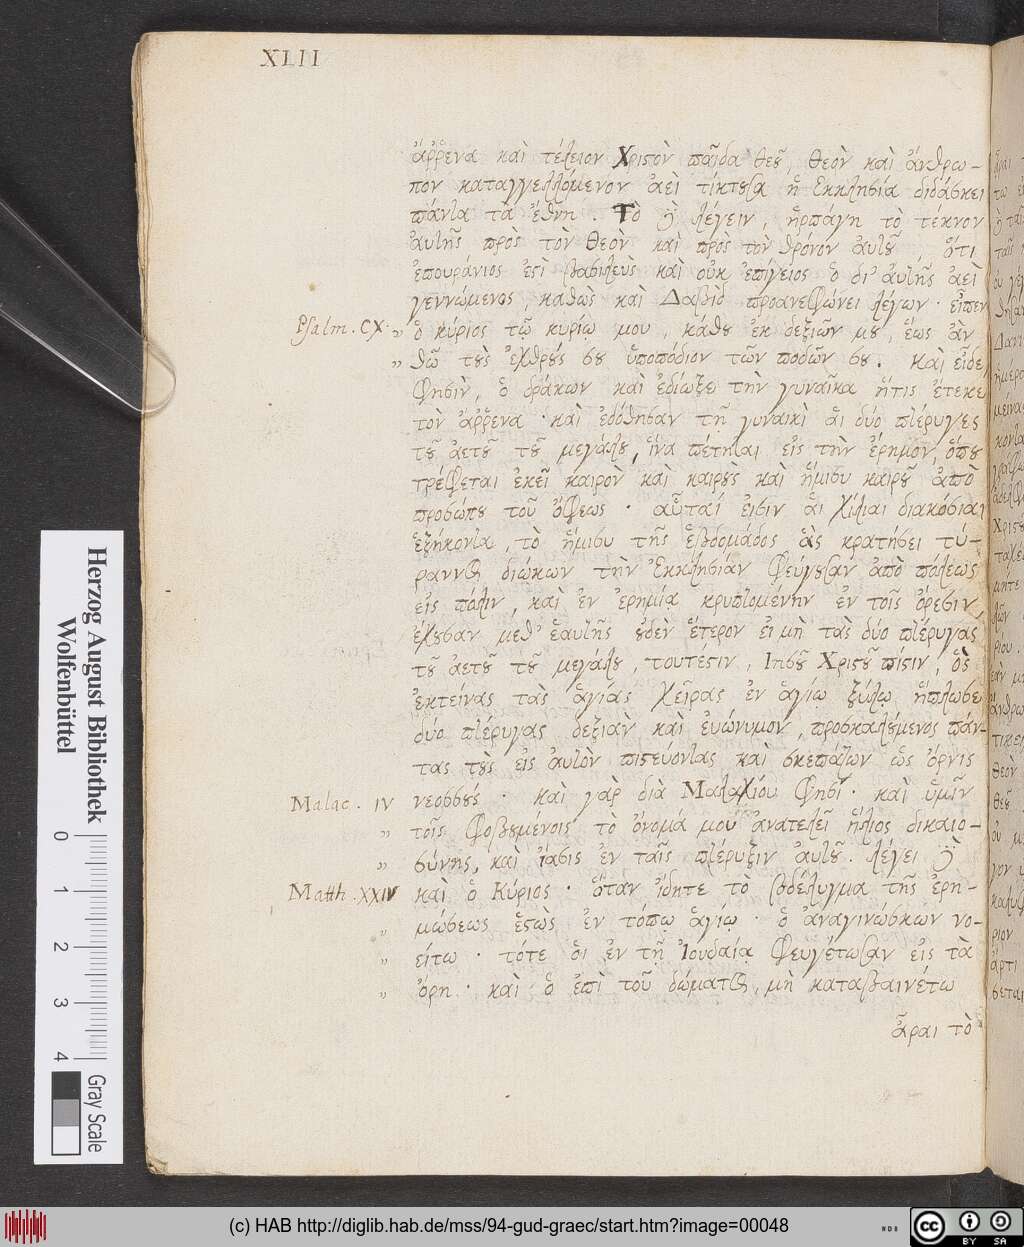 XLII
ἄῤῥενα καὶ τέλειον Χριϛὸν παῖδα θεȣ͂, θεὸν καὶ ἄνθρω-
πον καταγγελλόμενον ἀεὶ τίκτȣσα ἡ Ἐκκλησία διδάσκει
πάντα τὰ ἔθνη. Τὸ δὲ λέγειν, ἡρπάγη τὸ τέκνον
ἀυτῆς πρὸς τὸν Θεὸν καὶ πρὸς τὸν θρόνον ἀυτȣ͂, ὅτι
ἐπουράνιος ἐϛὶ βασιλεὺς καὶ οὐκ ἐπίγειος ὁ δι' ἀυτῆς ἀεὶ
γεννώμενος, καθὼς καὶ Δαβὶδ προανεφώνει λέγων· εἶπεν
Psalm. CX. „ ὁ κύριος τῷ κυρίῳ μου, κάθȣ ἐκ δεξιῶν μȣ, ἕως ἂν
„ θῶ τȣ̀ς ἐχθρȣ́ς σȣ ὑποπόδιον τῶν ποδῶν σȣ. καὶ εἶδε,
φησὶν, ὁ δράκων καὶ ἐδίωξε τὴν γυναῖκα ἥτις ἔτεκε
τὸν ἄῤῥενα· καὶ ἐδόθησαν τῇ γυναικὶ ἁι δύο πτέρυγες
τȣ͂ ἀετȣ͂ τȣ͂ μεγάλȣ, ἵνα πέτηται εἰς τὴν ἔρημον, ὅπȣ
τρέφεται ἐκεῖ καιρὸν καὶ καιρȣ̀ς καὶ ἥμισυ καιρȣ͂ ἀπὸ
προσώπȣ τοῦ ὄφεως. αὗταί ἐισιν ἁι χίλιαι διακόσιαι
ἑξήκοντα, τὸ ἥμισυ τῆς ἑβδομάδος ἃς κρατήσει τύ-
ραννος διώκων τὴν Ἐκκλησίαν φεύγȣσαν ἀπὸ πόλεως
εἰς πόλιν, καὶ ἐν ἐρημίᾳ κρυπτομένην ἐν τοῖς ὄρεσιν,
ἔχȣσαν μεθ' ἑαυτῆς ȣ̓δὲν ἕτερον ἐι μὴ τὰς δύο πτέρυγας
τȣ͂ ἀετȣ͂ τȣ͂ μεγάλȣ, τουτέϛιν, Ιησȣ͂ Χριϛȣ͂ πίϛιν, ὃς
ἐκτείνας τὰς ἁγίας χεῖρας ἐν ἁγίῳ ξύλῳ ἥπλωσε
δύο πτέρυγας δεξιὰν καὶ ἐυώνυμον, προσκαλȣ́μενος πάν-
τας τȣ̀ς εἰς ἀυτὸν πιϛεύοντας καὶ σκεπάζων ὡς ὄρνις
Malac. IV νεοσσȣ́ς. καὶ γὰρ διὰ Μαλαχίου φησί· καὶ ὑμῖν
„ τοῖς φοβȣμένοις τὸ ὄνομά μου ἀνατελεῖ ἥλιος δικαιο-
„ σύνης, καὶ ἴασις ἐν ταῖς πτέρυξιν ἀυτȣ͂. λέγει δὲ
Matth. XXIV καὶ ὁ Κύριος· ὅταν ἴδητε τὸ βδέλυγμα τῆς ἐρη-
„ μώσεως ἑϛὼς ἐν τόπῳ ἁγίῳ· ὁ ἀναγινώσκων νο-
„ είτω· τότε ὁι ἐν τῇ Ἰουδαίᾳ φευγέτωσαν εἰς τὰ
„ ὄρη. καὶ ὁ ἐπὶ τοῦ δώματος, μὴ καταβαινέτω
ἆραι τὸ
Herzog August Bibliothek
Wolfenbüttel
0 1 2 3 4
Gray Scale
(c) HAB http://diglib.hab.de/mss/94-gud-graec/start.htm?image=00048
cc BY SA